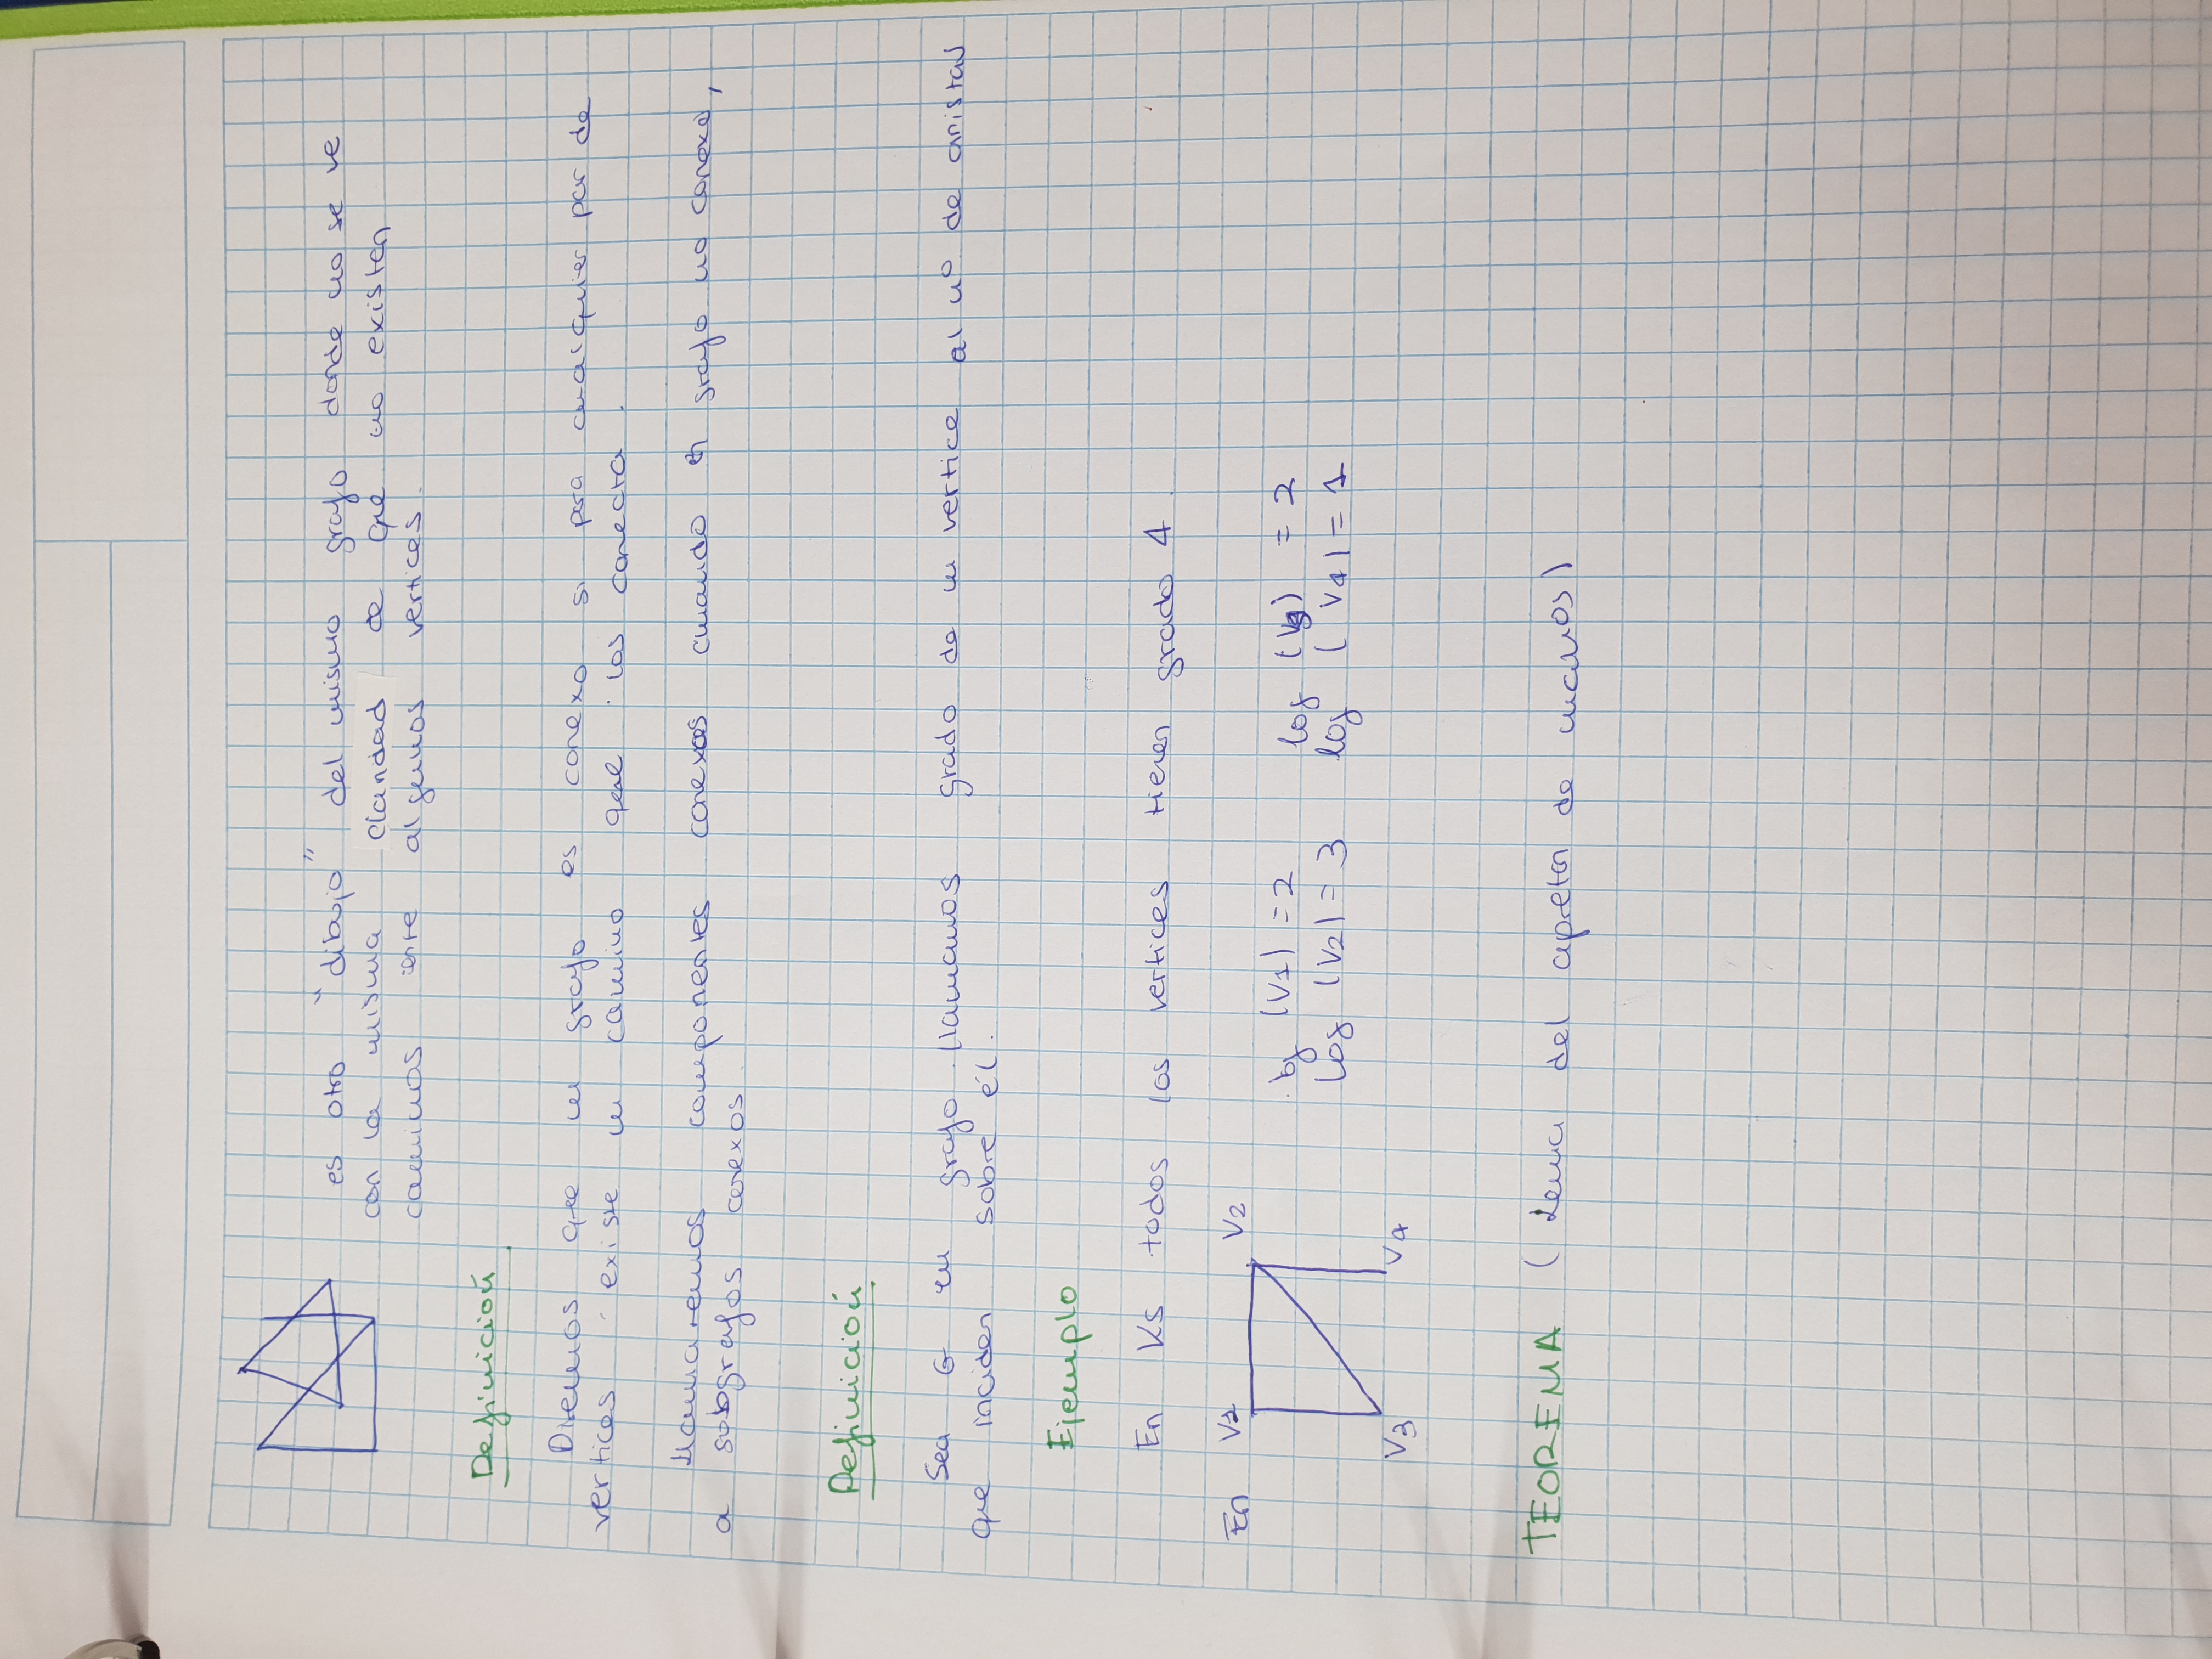 es otro "dibujo" del mismo grafo donde no se ve
con la misma claridad de que no existen
caminos entre algunos vertices.
Definición
Diremos que un grafo es conexo si para cualquier par de
vertices existe un camino que los conecta.
Llamaremos componentes conexas cuando en grafo no conexo,
a subgrafos conexos
Definición
Sea G un grafo llamamos grado de un vertice al no de aristas
que inciden sobre él.
Ejemplo
En K5 todos los vertices tienen grado 4.
En V1 V2 V3 V4
log (V1) = 2 log (V3) = 2
log (V2) = 3 log (V4) = 1
TEOREMA (Lema del apretón de manos)